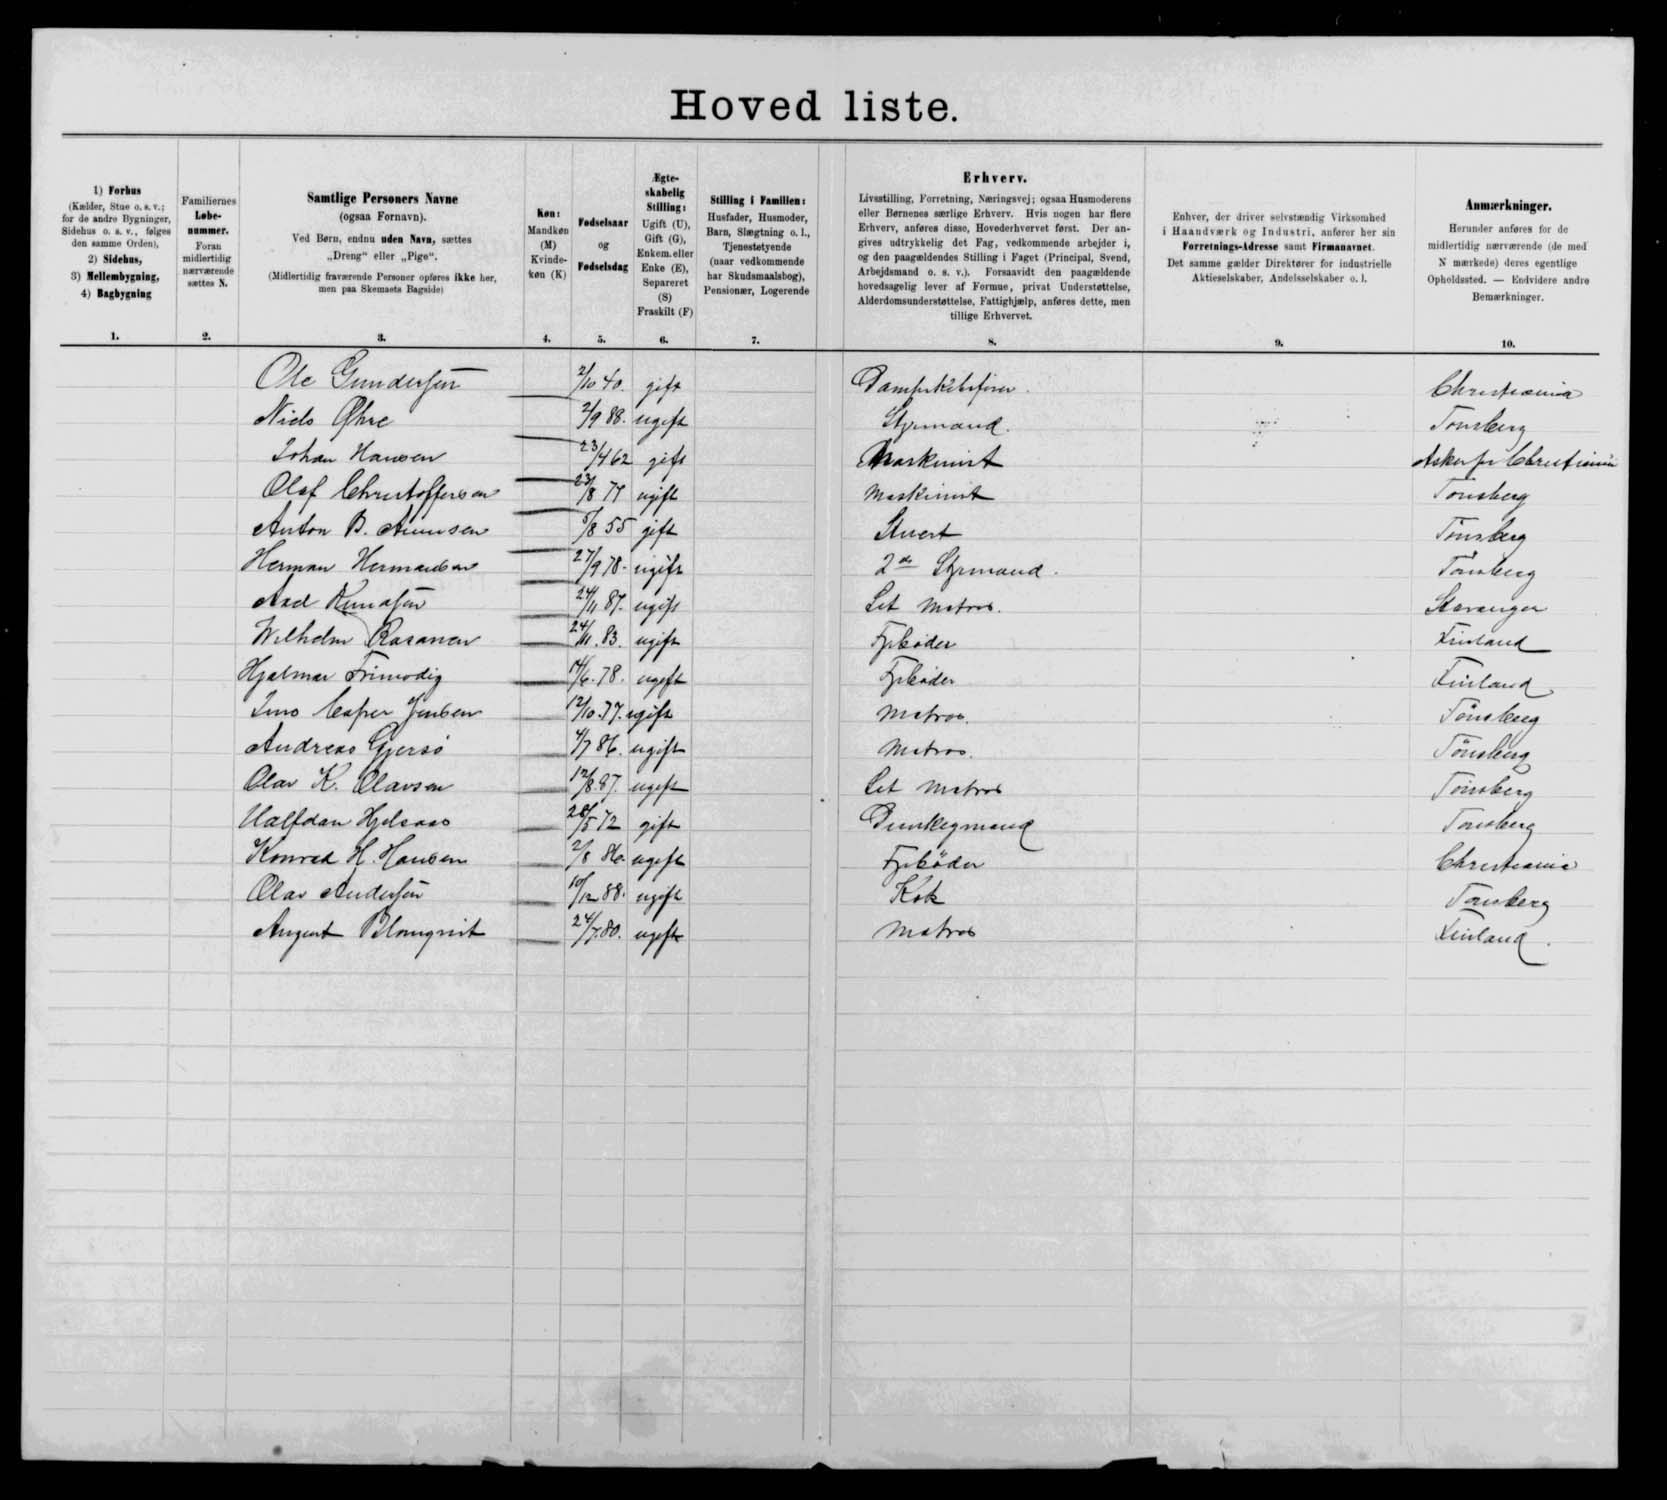 Hoved liste.
1) Forhus
(Kælder, Stue o. s. v.;
for de andre Bygninger,
Sidehus o. s. v., følges
den samme Orden),
2) Sidehus,
3) Mellembygning,
4) Bagbygning
1.
Familiernes
Løbe-
nummer.
Foran
midlertidig
nærværende
sættes N.
2.
Samtlige Personers Navne
(ogsaa Fornavn).
Ved Børn, endnu uden Navn, sættes
„Dreng“ eller „Pige“.
(Midlertidig fraværende Personer opføres ikke her,
men paa Skemaets Bagside)
3.
Køn:
Mandkøn
(M)
Kvinde-
køn (K)
4.
Fødselsaar
og
Fødselsdag
5.
Ægte-
skabelig
Stilling:
Ugift (U),
Gift (G),
Enkem. eller
Enke (E),
Separeret
(S)
Fraskilt (F)
6.
Stilling i Familien:
Husfader, Husmoder,
Barn, Slægtning o. l.,
Tjenestetyende
(naar vedkommende
har Skudsmaalsbog),
Pensionær, Logerende
7.
Erhverv.
Livsstilling, Forretning, Næringsvej; ogsaa Husmoderens
eller Børnenes særlige Erhverv. Hvis nogen har flere
Erhverv, anføres disse, Hovederhvervet først. Der an-
gives udtrykkelig det Fag, vedkommende arbejder i,
og den paagældendes Stilling i Faget (Principal, Svend,
Arbejdsmand o. s. v.). Forsaavidt den paagældende
hovedsagelig lever af Formue, privat Understøttelse,
Alderdomsunderstøttelse, Fattighjælp, anføres dette, men
tillige Erhvervet.
8.
Enhver, der driver selvstændig Virksomhed
i Haandværk og Industri, anfører her sin
Forretnings-Adresse samt Firmanavnet.
Det samme gælder Direktører for industrielle
Aktieselskaber, Andelsselskaber o. l.
9.
Anmærkninger.
Herunder anføres for de
midlertidig nærværende (de med
N mærkede) deres egentlige
Opholdssted. — Endvidere andre
Bemærkninger.
10.
Ole Gundersen 2/10 40. gift Dampskibsfører. Christiania
Niels Øhre 2/9 88. ugift Styrmand. Tonsberg
Johan Hansen 23/4 62 gift Maskinist Asker pr Christiania
Olaf Christoffersen 23/8 77 ugift Maskinist Tonsberg
Anton B. 5/8 55 gift Stuert Tönsberg
Herman Hermansen 27/9 78. ugift 2de Styrmand. Tönsberg
Knudsen 24/11 87. ugift Let Matros. Stavanger
Wilhelm Rasanen 24/11. 83. ugift Fyrböder Finland
Hjalmar Frimodig 14/6. 78. ugift Fyrböder Finland
Jens Casper Jensen 12/10. 77. ugift Matros. Tönsberg
Andreas Gjersö 4/7 86. ugift Matros. Tönsberg
Olav K. Olavsen 12/8. 87. ugift Let Matros Tönsberg
Halfdan 28/5 72 gift Dunkeymand Tonsberg
Konrad H. Hansen 2/8 86. ugift Fyrböder Christiania
Olav Andersen 10/12 88. ugift Kok Tonsberg
August Blomqvist 24/7. 80. ugift Matros Finland.